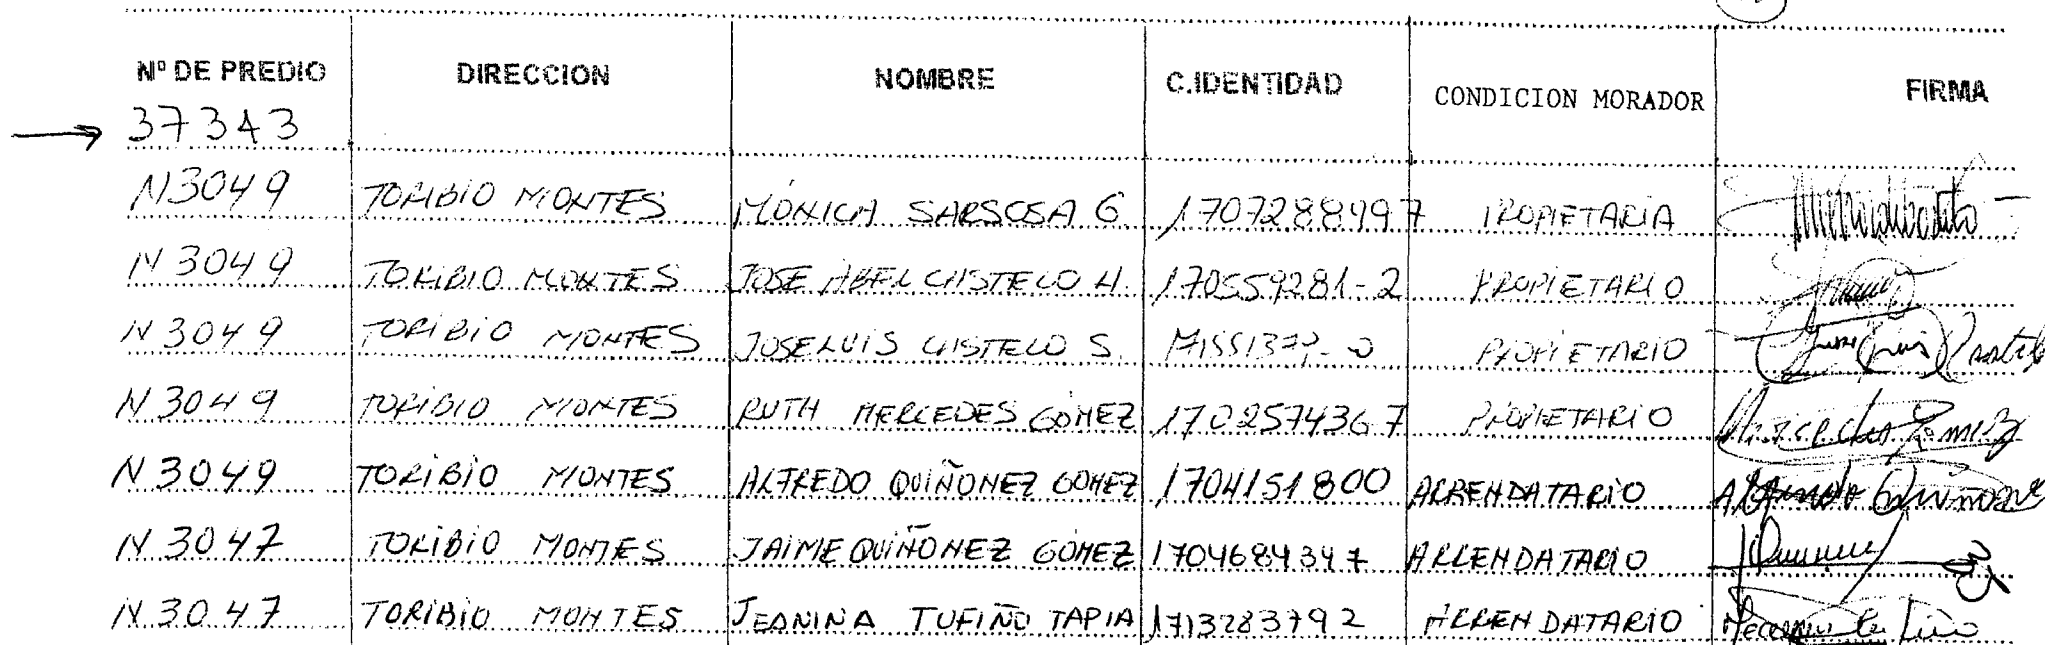 Nº DE PREDIO DIRECCION NOMBRE C.IDENTIDAD CONDICION MORADOR FIRMA
37343
N3049 TORIBIO MONTES MÓNICA SARSOSA G 1707288497 PROPIETARIA
N3049 TORIBIO MONTES JOSE ABEL CASTELO H. 170559281-2 PROPIETARIO
N3049 TORIBIO MONTES JOSE LUIS CASTELO S. PROPIETARIO Jose Luis
N3049 TORIBIO MONTES RUTH MERCEDES GÓMEZ 1702574367 PROPIETARIO Mercedes Gomez
N3049 TORIBIO MONTES ALFREDO QUIÑONEZ GOMEZ 1704151800 ARRENDATARIO
N3047 TORIBIO MONTES JAIME QUIÑONEZ GOMEZ 1704684347 ARRENDATARIO
N3047 TORIBIO MONTES JEANINA TUFIÑO TAPIA 1713283792 ARRENDATARIO